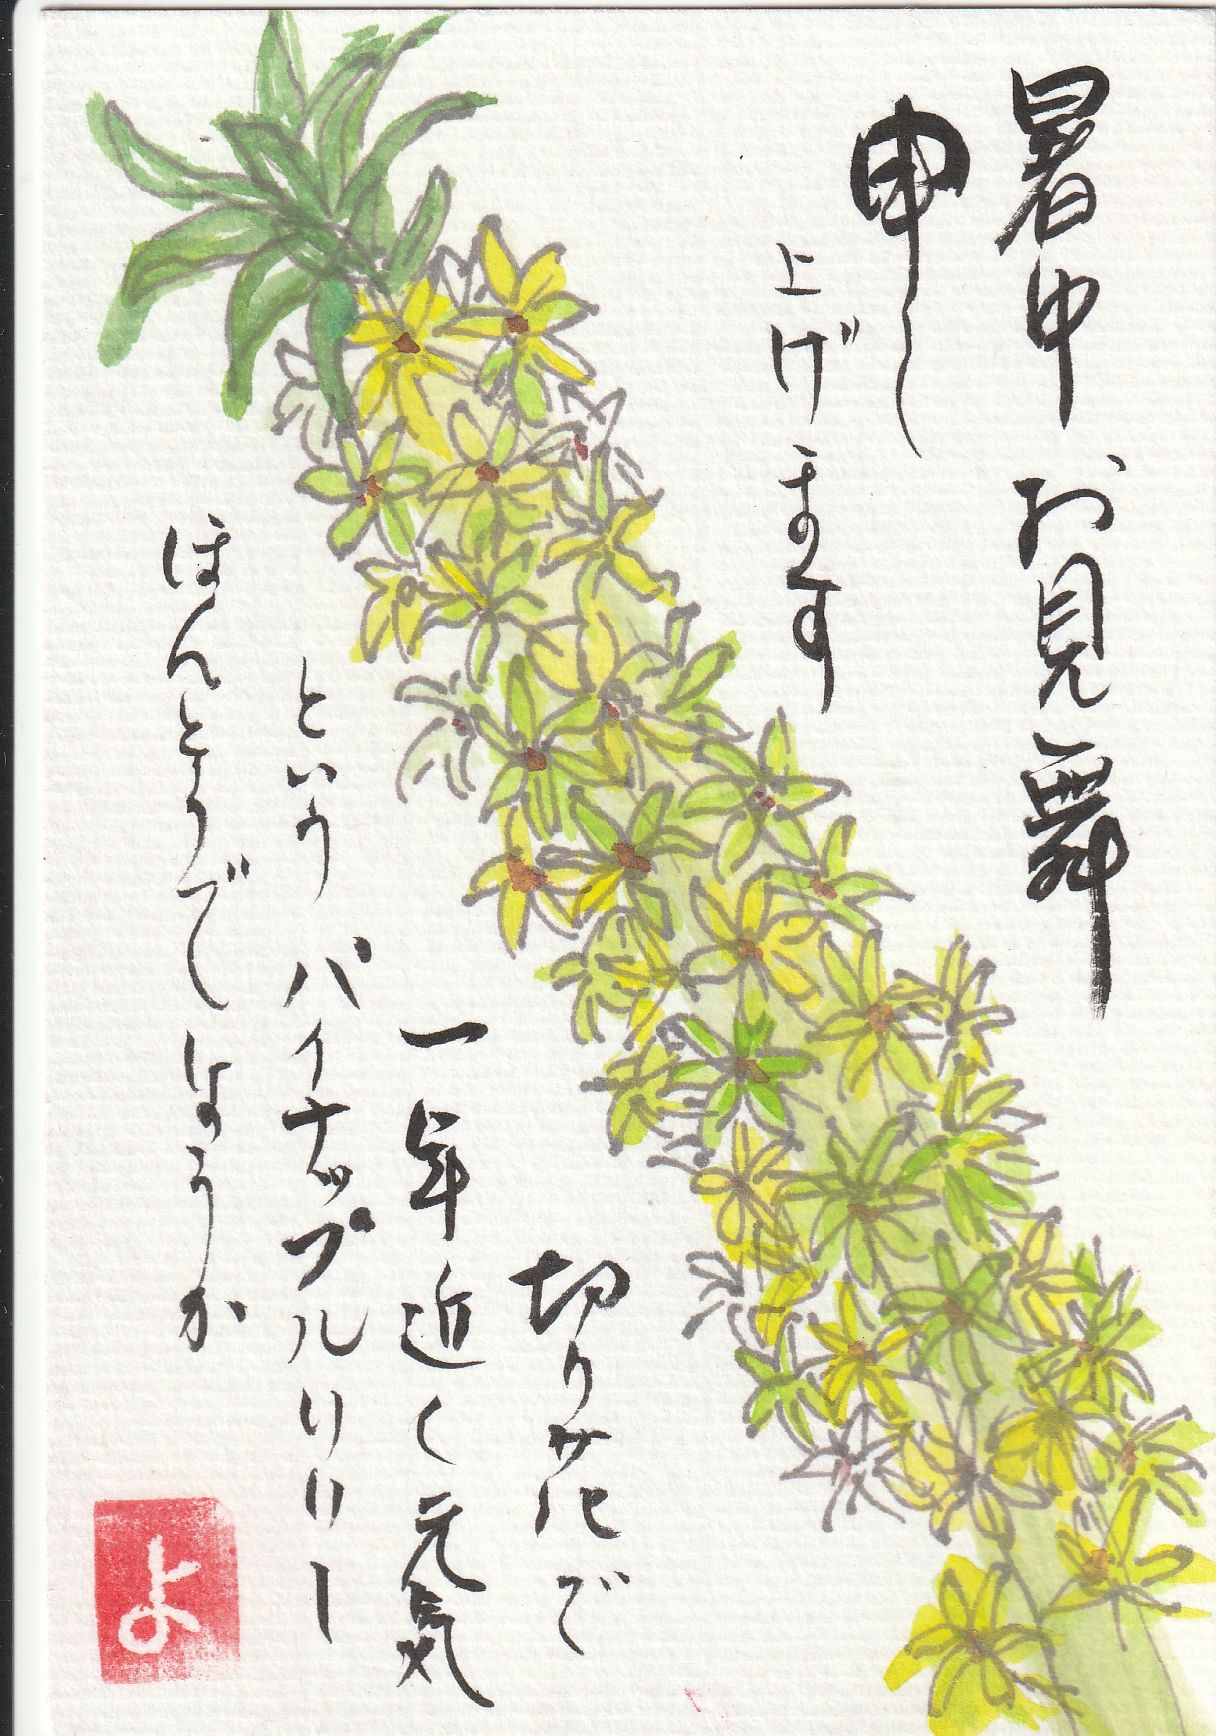 暑中お見舞
申し
上げます
切り花で
一年近く元気
という パイナップルリリー
ほんとうでしょうか
よ